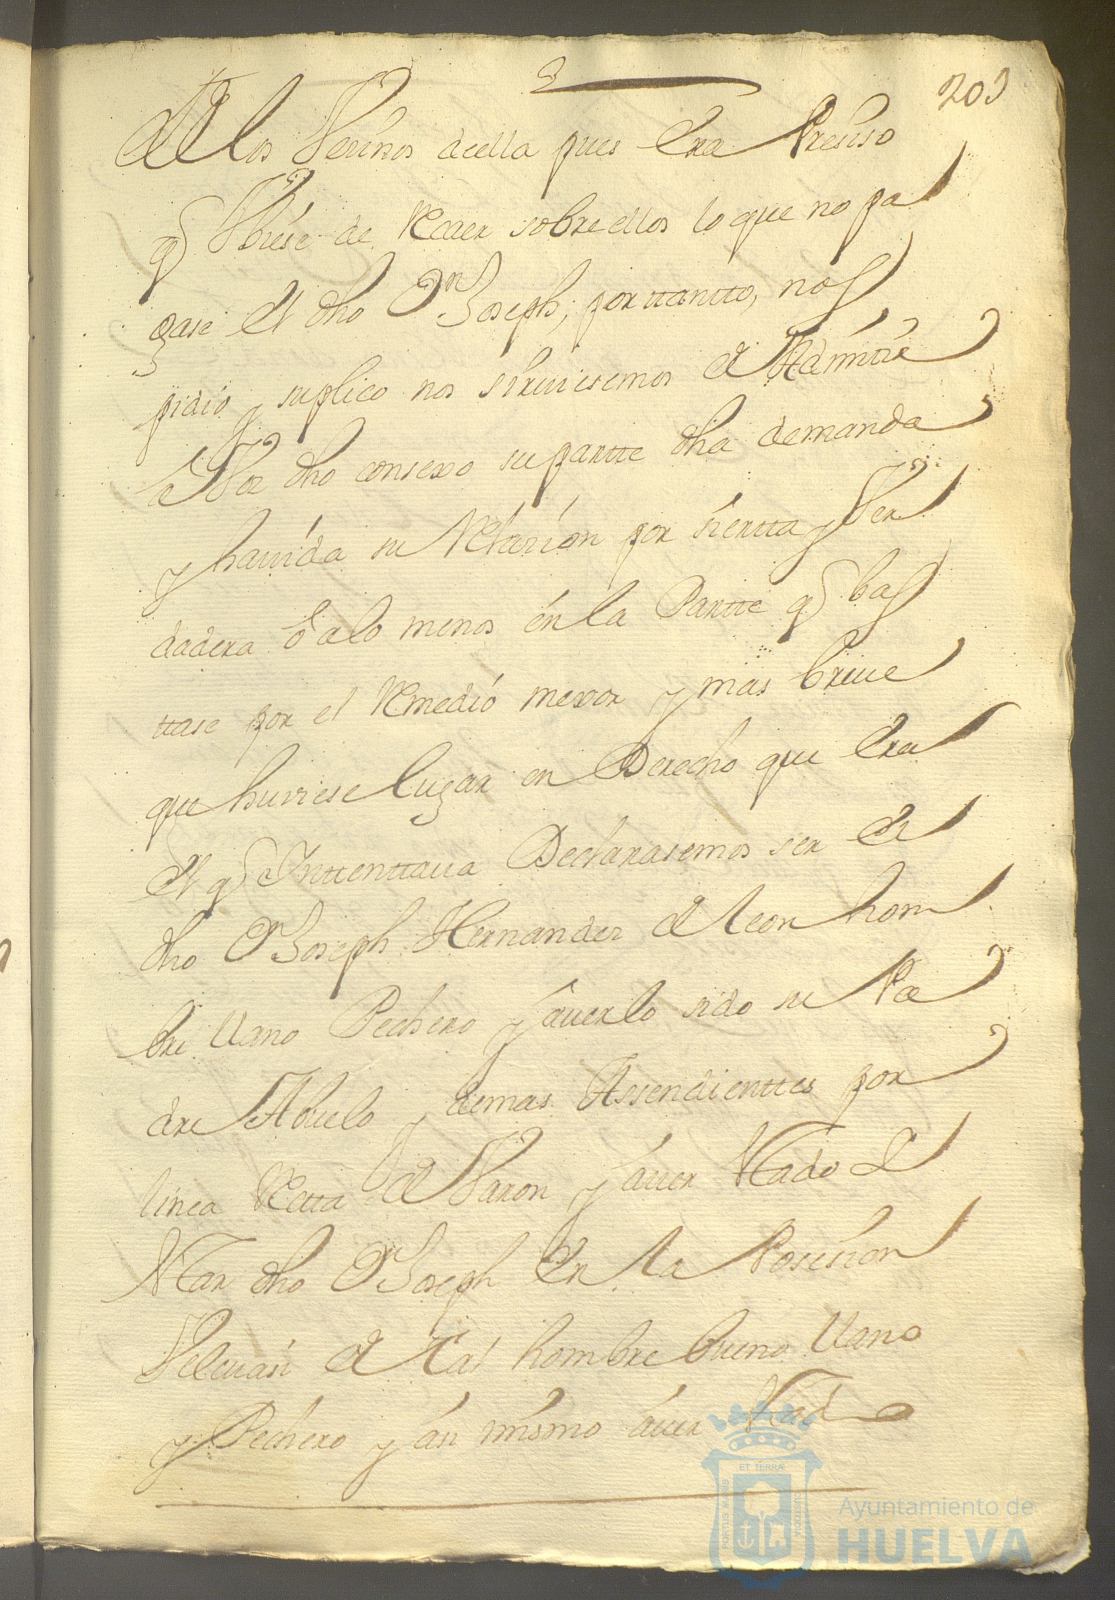 203
de los Vesinos deella pues Era Presiso
q Vbiese de Recaer sobre ellos lo que no pa
gase El dho Dn Joseph, porttantto, nos
pidio y suplico nos sirviesemos de Admittir
a Vos dho consexo su partte dha demanda
y havida su Relasion por sierta y Ver
dadera o alo menos en la Partte q bas
ttase por el Remedio mexor y mas breve
que huviese lugar en Derecho que Era
El q Inttenttava Declarasemos ser El
dho Dn Joseph Hernandez de leon hom
bre llano Pechero y averlo sido su Pa
dre Abuelo y demas Assendienttes por
linea Retta de Varon y aver Estado
dho Dn Joseph En la Posesion
de Tal hombre bueno llano
y Pechero y asi mismo aver Estado
ET TERRAE
PORTUS MARIS
CUSTODIA
Ayuntamiento de
HUELVA